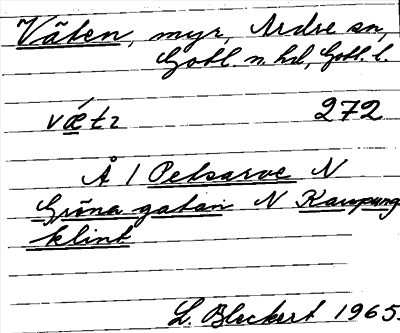 Väten, myr, Ardre sn,
Gotl. n. hd, Gotl. l.
vǽtz 272
Å 1 Petsarve N
Gröna gatan N Kaupung
klint
L. Bleckert 1965.